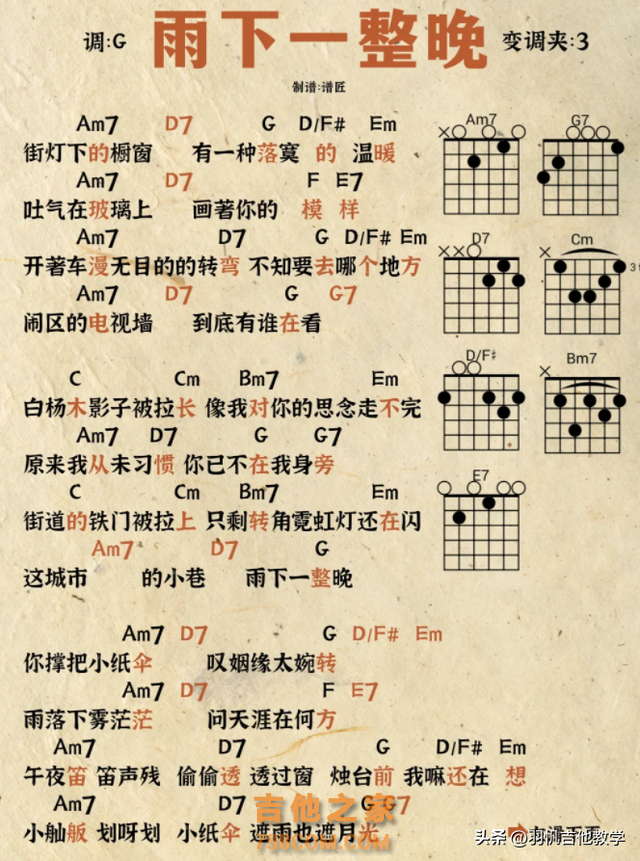 调:G 雨下一整晚 变调夹:3
制谱:谱匠
Am7 D7 G D/F# Em
街灯下的橱窗 有一种落寞 的 温暖
Am7 D7 F E7
吐气在玻璃上 画著你的 模 样
Am7 D7 G D/F# Em
开著车漫无目的的转弯 不知要去哪个地方
Am7 D7 G G7
闹区的电视墙 到底有谁在看
C Cm Bm7 Em
白杨木影子被拉长 像我对你的思念走不完
Am7 D7 G G7
原来我从未习惯 你已不在我身旁
C Cm Bm7 Em
街道的铁门被拉上 只剩转角霓虹灯还在闪
Am7 D7 G
这城市 的小巷 雨下一整晚
Am7 D7 G D/F# Em
你撑把小纸伞 叹姻缘太婉转
Am7 D7 F E7
雨落下雾茫茫 问天涯在何方
Am7 D7 G D/F# Em
午夜笛 笛声残 偷偷透 透过窗 烛台前 我嘛还在 想
Am7 D7 G G7
小舢舨 划呀划 小纸伞 遮雨也遮月光
Am7 G7
D7 Cm
3
D/F# Bm7
E7
吉他之家
798COM.COM
头条 @羽帆吉他教学